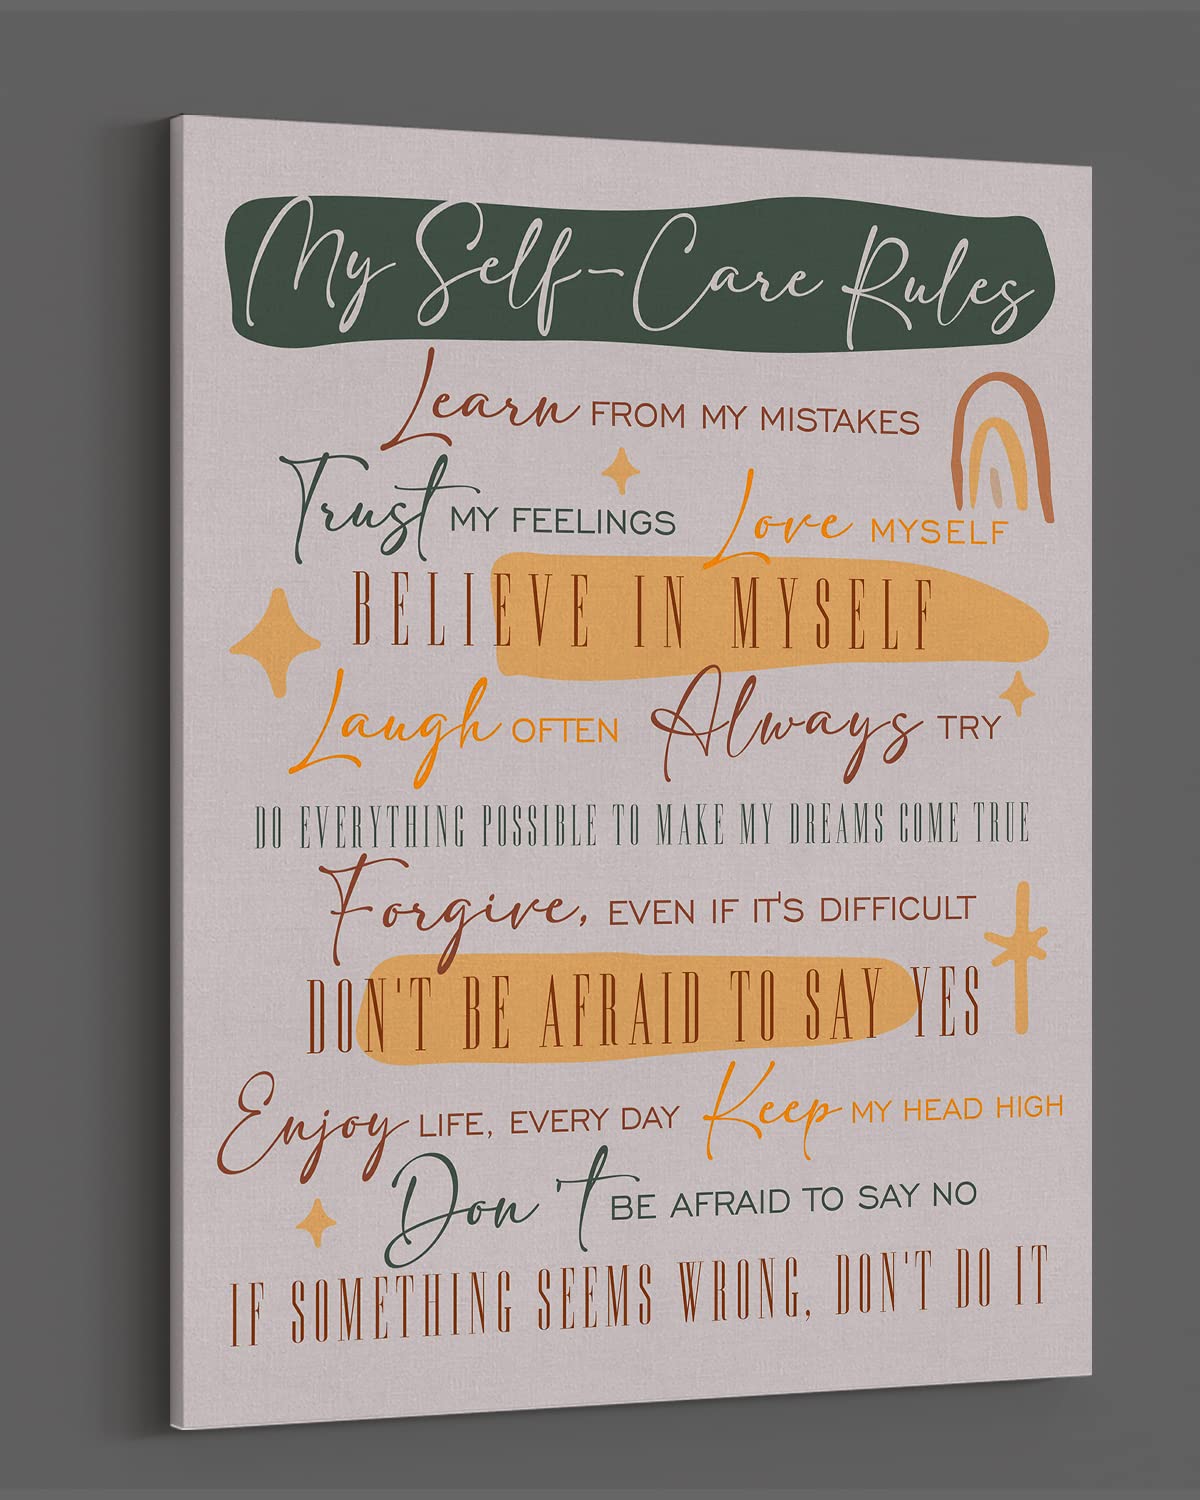 My Self-Care Rules
Learn FROM MY MISTAKES
Trust MY FEELINGS Love MYSELF
BELIEVE IN MYSELF
Laugh OFTEN Always TRY
DO EVERYTHING POSSIBLE TO MAKE MY DREAMS COME TRUE
Forgive, EVEN IF IT'S DIFFICULT
DON'T BE AFRAID TO SAY YES
Enjoy LIFE, EVERY DAY Keep MY HEAD HIGH
Don't BE AFRAID TO SAY NO
IF SOMETHING SEEMS WRONG, DON'T DO IT